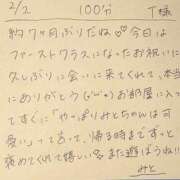 2/2 100分 T様
約7ヶ月ぶりだね♡♡今日は
ファーストクラスになったお祝いに
久しぶりに会いに来てくれて、本当
にありがとう(&gt;ω&lt;)お部屋に入っ
てすぐに「やっぱりみとちゃんは可
愛い」って言って、帰る時までずっと
褒めてくれて嬉しい
また遊ぼうね!!
みと